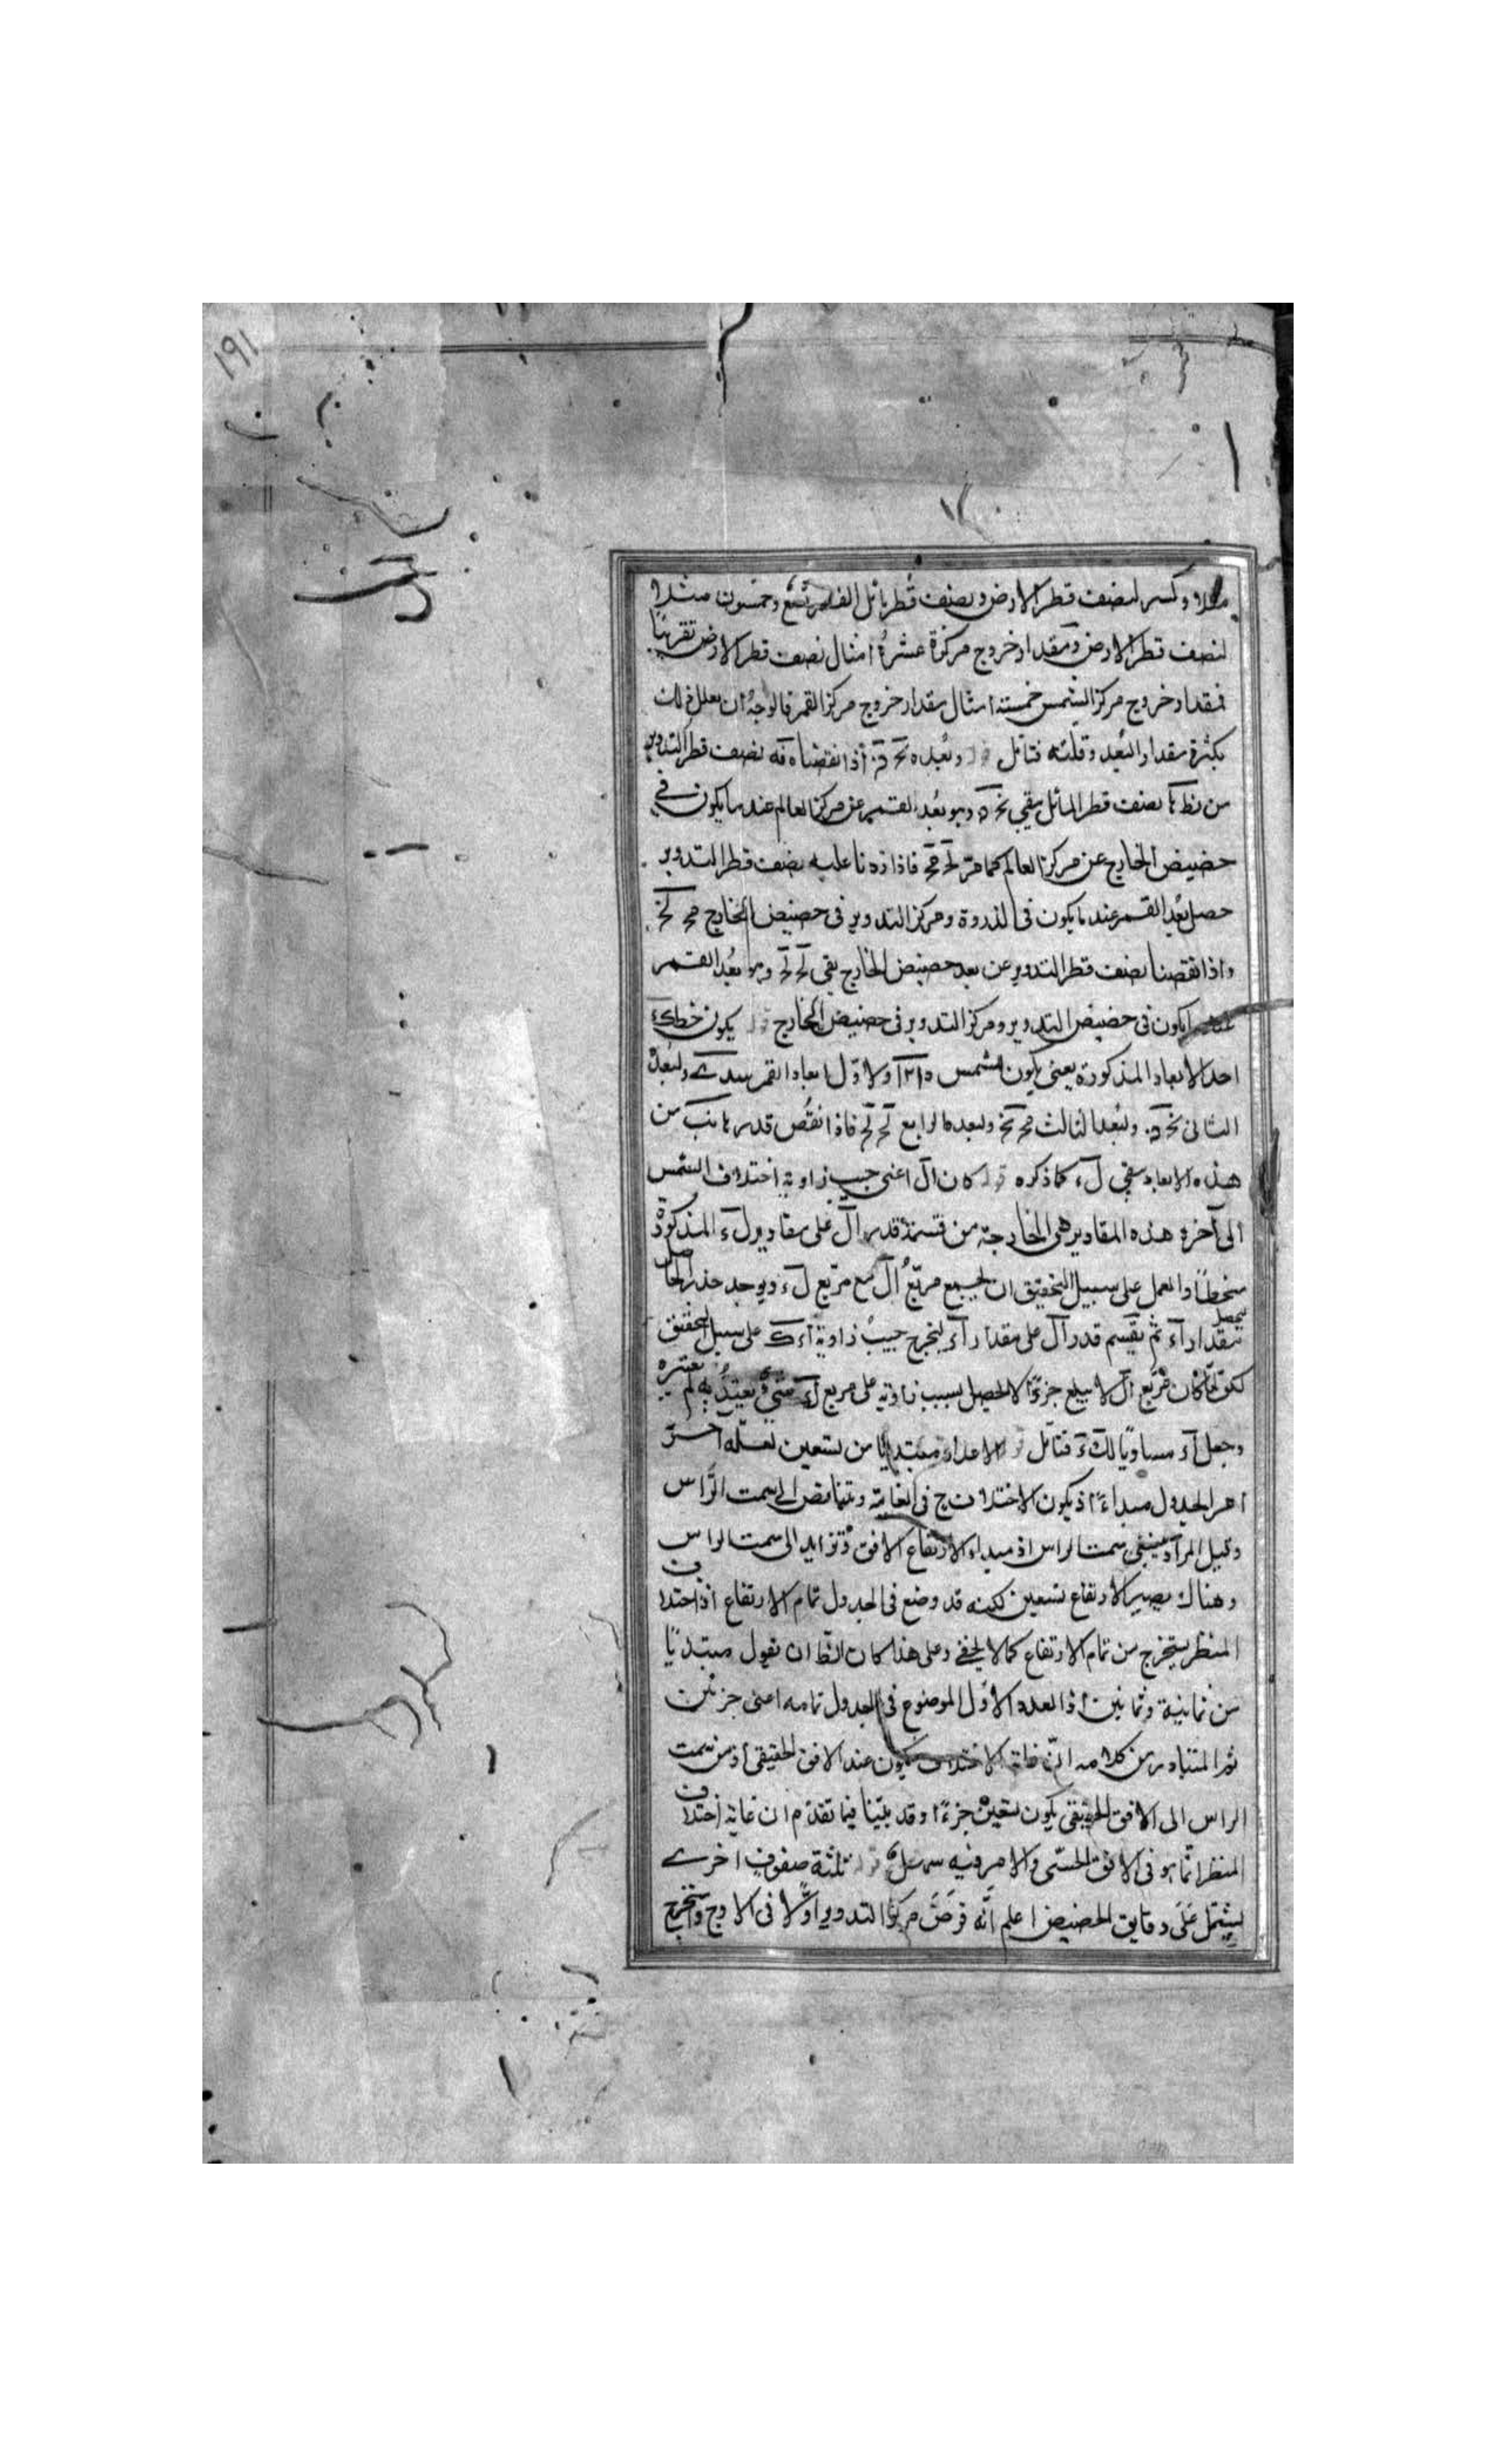 ١٩١
مثلا وكسر لنصف قطر الارض ونصف قطر مائل القمر تسع وخمسون مثلا
لنصف قطر الارض ومقدار خروج مركزه عشرة امثال نصف قطر الارض تقريبا
فمقدار خروج مركز الشمس خمسة امثال مقدار خروج مركز القمر فالوجه ان يعلل ذلك
بكثرة مقدار البعد وقلته فتأمل وبعده اذا نقصناه نصف قطر التدوير
من نط نصف قطر المائل بقي وهو بعد القمر عن مركز العالم عند ما يكون في
حضيض الخارج عن مركز العالم كما مر لح مح فاذا زدنا عليه نصف قطر التدوير
حصل بعد القمر عند ما يكون في الذروة ومركز التدوير في حضيض الخارج مح نح
واذا نقصنا نصف قطر التدوير عن بعد حضيض الخارج بقي لح لح وهو بعد القمر
عند ما يكون في حضيض التدوير ومركز التدوير في حضيض الخارج يكون خط كء
احد الابعاد المذكورة يعني يكون للشمس ١٢١٠ ولاول ابعاد القمر سد ى ولبعده
الثاني ولبعد الثالث مح نح ولبعده الرابع لح لح فاذا نقص قدر ما نب من
هذه الابعاد بقي ل ء كما ذكره قوله كان ال اعني جيب زاوية اختلاف الشمس
الى آخره هذه المقادير هي الخارجة من قسمة قدر ال على مقادير ل ء المذكورة
منحطا والعمل على سبيل التحقيق ان يجمع مربع ال مع مربع ل ء ويوجد جذر الحاصل
ليحصل مقدار آء ثم يقسم قدر ال على مقدار آء ليخرج جيب زاوية اء ك على سبيل التحقيق
لكن لما كان مربع ال لا يبلغ جزءا لا يحصل بسبب زيادته على مربع شيء يعتد به لم يعتبره
وجعل آء مساويا ل ل ء فتأمل قوله الاعداد مبتديا من تسعين لعله
الجدول مبداء اذ يكون الاختلاف ح في الغاية ويتناقص الى سمت الرأس
وقيل المراد سمت الراس اذ مبداء الارتفاع الافق وتزايد الى سمت الراس
وهناك يصير الارتفاع تسعين لكنه قد وضع في الجدول تمام الارتفاع اذ اختلاف
المنظر يستخرج من تمام الارتفاع كما لا يخفى وعلى هذا كان الظ ان يقول مبتديا
من ثمانية وثمانين اذ العدد الاول الموضوع في الجدول تمامه اعني جزئين
ثم المتبادر من كلامه ان غاية الاختلاف يكون عند الافق الحقيقي اذ من سمت
الراس الى الافق الحقيقي يكون تسعين جزءا وقد بينا فيما تقدم ان غاية اختلاف
المنظر انما هو في الافق الحسي والامر فيه سهل قوله ثلثة صفوف اخرى
ليشتمل على دقايق الحضيض اعلم انه فرض مركز التدوير اولا في الاوج واستخرج